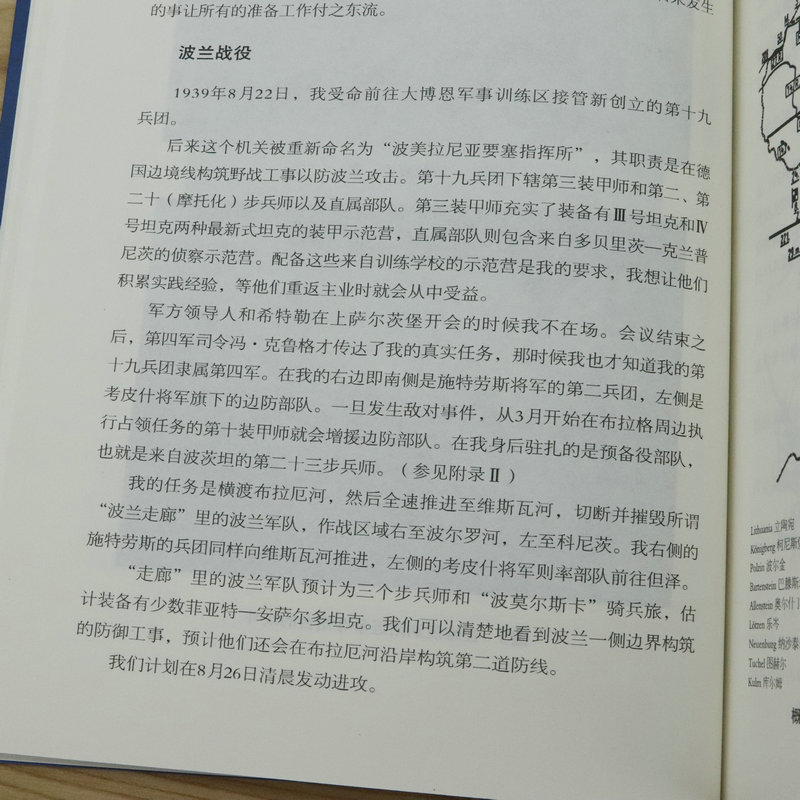 的事让所有的准备工作付之东流。
波兰战役
1939年8月22日，我受命前往大博恩军事训练区接管新创立的第十九
兵团。
后来这个机关被重新命名为“波美拉尼亚要塞指挥所”，其职责是在德
国边境线构筑野战工事以防波兰攻击。第十九兵团下辖第三装甲师和第二、第
二十（摩托化）步兵师以及直属部队。第三装甲师充实了装备有Ⅲ号坦克和Ⅳ
号坦克两种最新式坦克的装甲示范营，直属部队则包含来自多贝里茨—克兰普
尼茨的侦察示范营。配备这些来自训练学校的示范营是我的要求，我想让他们
积累实践经验，等他们重返主业时就会从中受益。
军方领导人和希特勒在上萨尔茨堡开会的时候我不在场。会议结束之
后，第四军司令冯·克鲁格才传达了我的真实任务，那时候我也才知道我的第
十九兵团隶属第四军。在我的右边即南侧是施特劳斯将军的第二兵团，左侧是
考皮什将军旗下的边防部队。一旦发生敌对事件，从3月开始在布拉格周边执
行占领任务的第十装甲师就会增援边防部队。在我身后驻扎的是预备役部队，
也就是来自波茨坦的第二十三步兵师。（参见附录Ⅱ）
我的任务是横渡布拉厄河，然后全速推进至维斯瓦河，切断并摧毁所谓
“波兰走廊”里的波兰军队，作战区域右至波尔罗河，左至科尼茨。我右侧的
施特劳斯的兵团同样向维斯瓦河推进，左侧的考皮什将军则率部队前往但泽。
“走廊”里的波兰军队预计为三个步兵师和“波莫尔斯卡”骑兵旅，估
计装备有少数菲亚特—安萨尔多坦克。我们可以清楚地看到波兰一侧边界构筑
的防御工事，预计他们还会在布拉厄河沿岸构筑第二道防线。
我们计划在8月26日清晨发动进攻。
Lithuania 立陶宛
Königberg 柯尼斯
Polzin 波尔金
Bartenstein 巴滕斯
Allenstein 奥尔什丁
Lötzen 乐岑
Neuenburg 纳沙泰
Tuchel 图赫尔
Kulm 库尔姆
概